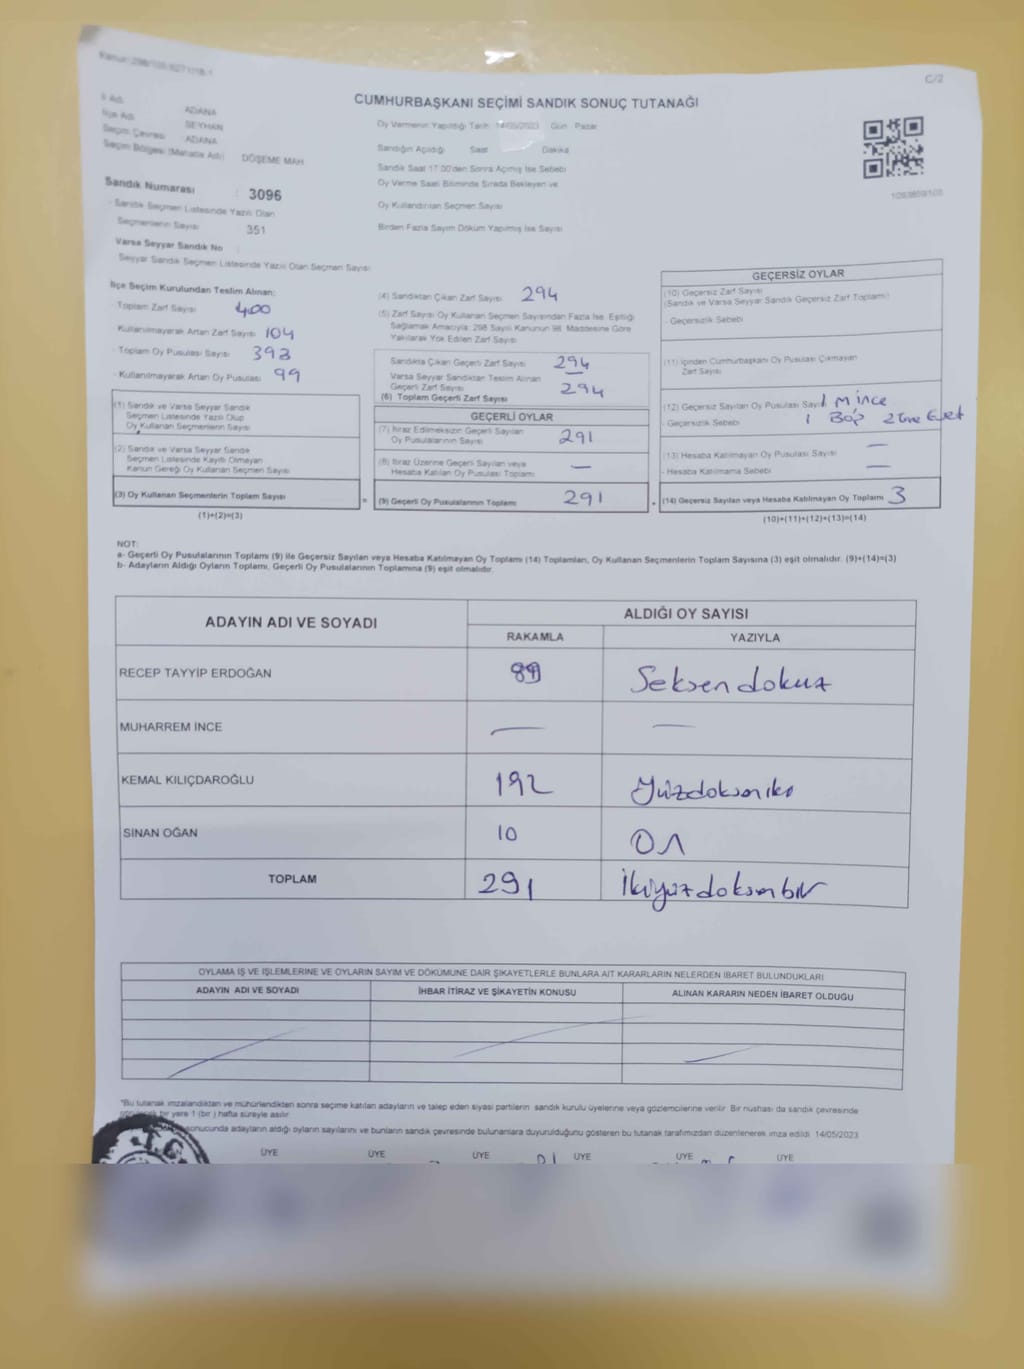 C/2
CUMHURBAŞKANI SEÇİMİ SANDIK SONUÇ TUTANAĞI
İl Adı ADANA
İlçe Adı SEYHAN
Seçim Çevresi ADANA
Seçim Bölgesi (Mahalle Adı) DÖŞEME MAH
Sandık Numarası : 3096
- Sandık Seçmen Listesinde Yazılı Olan
Seçmenlerin Sayısı 351
Varsa Seyyar Sandık No :
Seyyar Sandık Seçmen Listesinde Yazılı Olan Seçmen Sayısı
Oy Vermenin Yapıldığı Tarih 14/05/2023 Gün Pazar
Sandığın Açıldığı Saat Dakika
Sandık Saat 17.00'den Sonra Açılmış İse Sebebi
Oy Verme Saati Bitiminde Sırada Bekleyen ve
Oy Kullandırılan Seçmen Sayısı
Birden Fazla Sayım Döküm Yapılmış İse Sayısı
İlçe Seçim Kurulundan Teslim Alınan:
- Toplam Zarf Sayısı 400
- Kullanılmayarak Artan Zarf Sayısı 104
- Toplam Oy Pusulası Sayısı 393
- Kullanılmayarak Artan Oy Pusulası 99
(1) Sandık ve Varsa Seyyar Sandık
Seçmen Listesinde Yazılı Olup
Oy Kullanan Seçmenlerin Sayısı
(2) Sandık ve Varsa Seyyar Sandık
Seçmen Listesinde Kayıtlı Olmayan
Kanun Gereği Oy Kullanan Seçmen Sayısı
(3) Oy Kullanan Seçmenlerin Toplam Sayısı
(1)+(2)=(3)
(4) Sandıktan Çıkan Zarf Sayısı 294
(5) Zarf Sayısı Oy Kullanan Seçmen Sayısından Fazla İse, Eşitliği
Sağlamak Amacıyla, 298 Sayılı Kanunun 98. Maddesine Göre
Yakılarak Yok Edilen Zarf Sayısı
Sandıkta Çıkan Geçerli Zarf Sayısı 294
Varsa Seyyar Sandıktan Teslim Alınan
Geçerli Zarf Sayısı —
(6) Toplam Geçerli Zarf Sayısı 294
GEÇERLİ OYLAR
(7) İtiraz Edilmeksizin Geçerli Sayılan
Oy Pusulalarının Sayısı 291
(8) İtiraz Üzerine Geçerli Sayılan veya
Hesaba Katılan Oy Pusulası Toplamı —
= (9) Geçerli Oy Pusulalarının Toplamı 291
GEÇERSİZ OYLAR
(10) Geçersiz Zarf Sayısı
(Sandık ve Varsa Seyyar Sandık Geçersiz Zarf Toplamı)
- Geçersizlik Sebebi
(11) İçinden Cumhurbaşkanı Oy Pusulası Çıkmayan
Zarf Sayısı
(12) Geçersiz Sayılan Oy Pusulası Sayısı 1 M ince
- Geçersizlik Sebebi 1 Boş 2 tane Evet
(13) Hesaba Katılmayan Oy Pusulası Sayısı —
- Hesaba Katılmama Sebebi —
+ (14) Geçersiz Sayılan veya Hesaba Katılmayan Oy Toplamı 3
(10)+(11)+(12)+(13)=(14)
NOT:
a- Geçerli Oy Pusulalarının Toplamı (9) ile Geçersiz Sayılan veya Hesaba Katılmayan Oy Toplamı (14) Toplamları, Oy Kullanan Seçmenlerin Toplam Sayısına (3) eşit olmalıdır. (9)+(14)=(3)
b- Adayların Aldığı Oyların Toplamı, Geçerli Oy Pusulalarının Toplamına (9) eşit olmalıdır.
ADAYIN ADI VE SOYADI ALDIĞI OY SAYISI
RAKAMLA YAZIYLA
RECEP TAYYİP ERDOĞAN 89 Seksendokuz
MUHARREM İNCE — —
KEMAL KILIÇDAROĞLU 192 Yüzdoksaniki
SİNAN OĞAN 10 On
TOPLAM 291 İkiyüzdoksanbir
OYLAMA İŞ VE İŞLEMLERİNE VE OYLARIN SAYIM VE DÖKÜMÜNE DAİR ŞİKAYETLERLE BUNLARA AİT KARARLARIN NELERDEN İBARET BULUNDUKLARI
ADAYIN ADI VE SOYADI İHBAR İTİRAZ VE ŞİKAYETİN KONUSU ALINAN KARARIN NEDEN İBARET OLDUĞU
*Bu tutanak imzalandıktan ve mühürlendikten sonra seçime katılan adayların ve talep eden siyasi partilerin sandık kurulu üyelerine veya gözlemcilerine verilir. Bir nüshası da sandık çevresinde
bir yere 1 (bir) hafta süreyle asılır.
sonucunda adayların aldığı oyların sayılarını ve bunların sandık çevresinde bulunanlara duyurulduğunu gösteren bu tutanak tarafımızdan düzenlenerek imza edildi. 14/05/2023
T.C.
ÜYE ÜYE ÜYE ÜYE ÜYE ÜYE